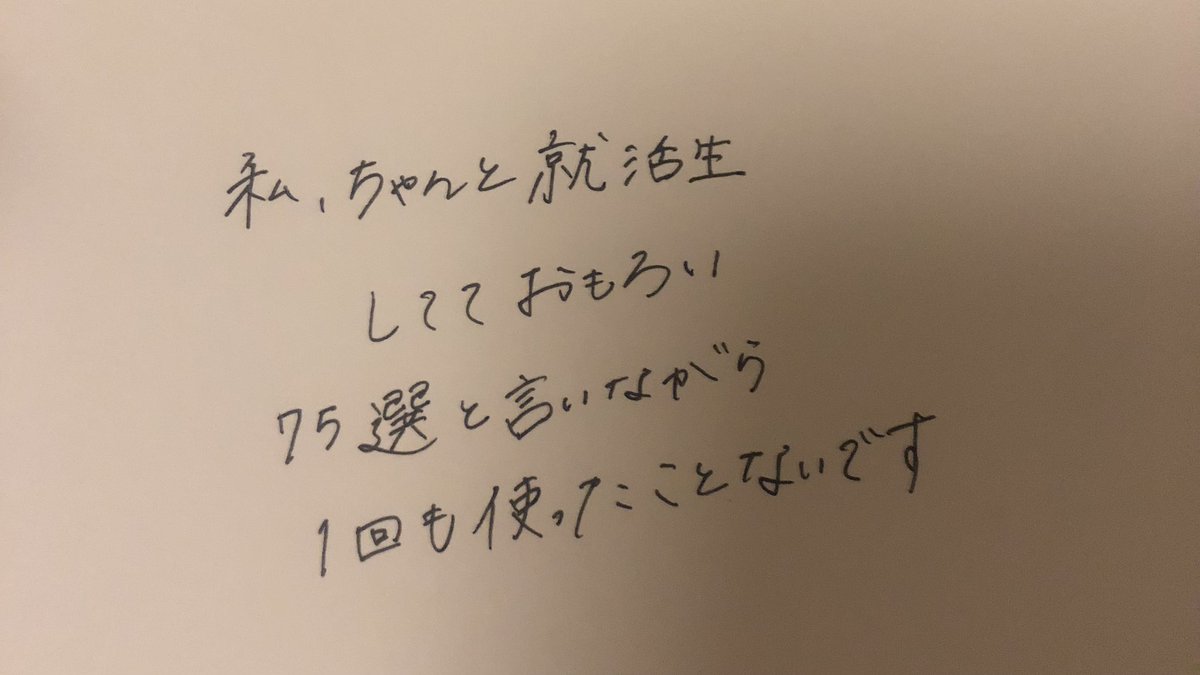 私、ちゃんと就活生
しててておもろい
75選と言いながら
1回も使ったことないです